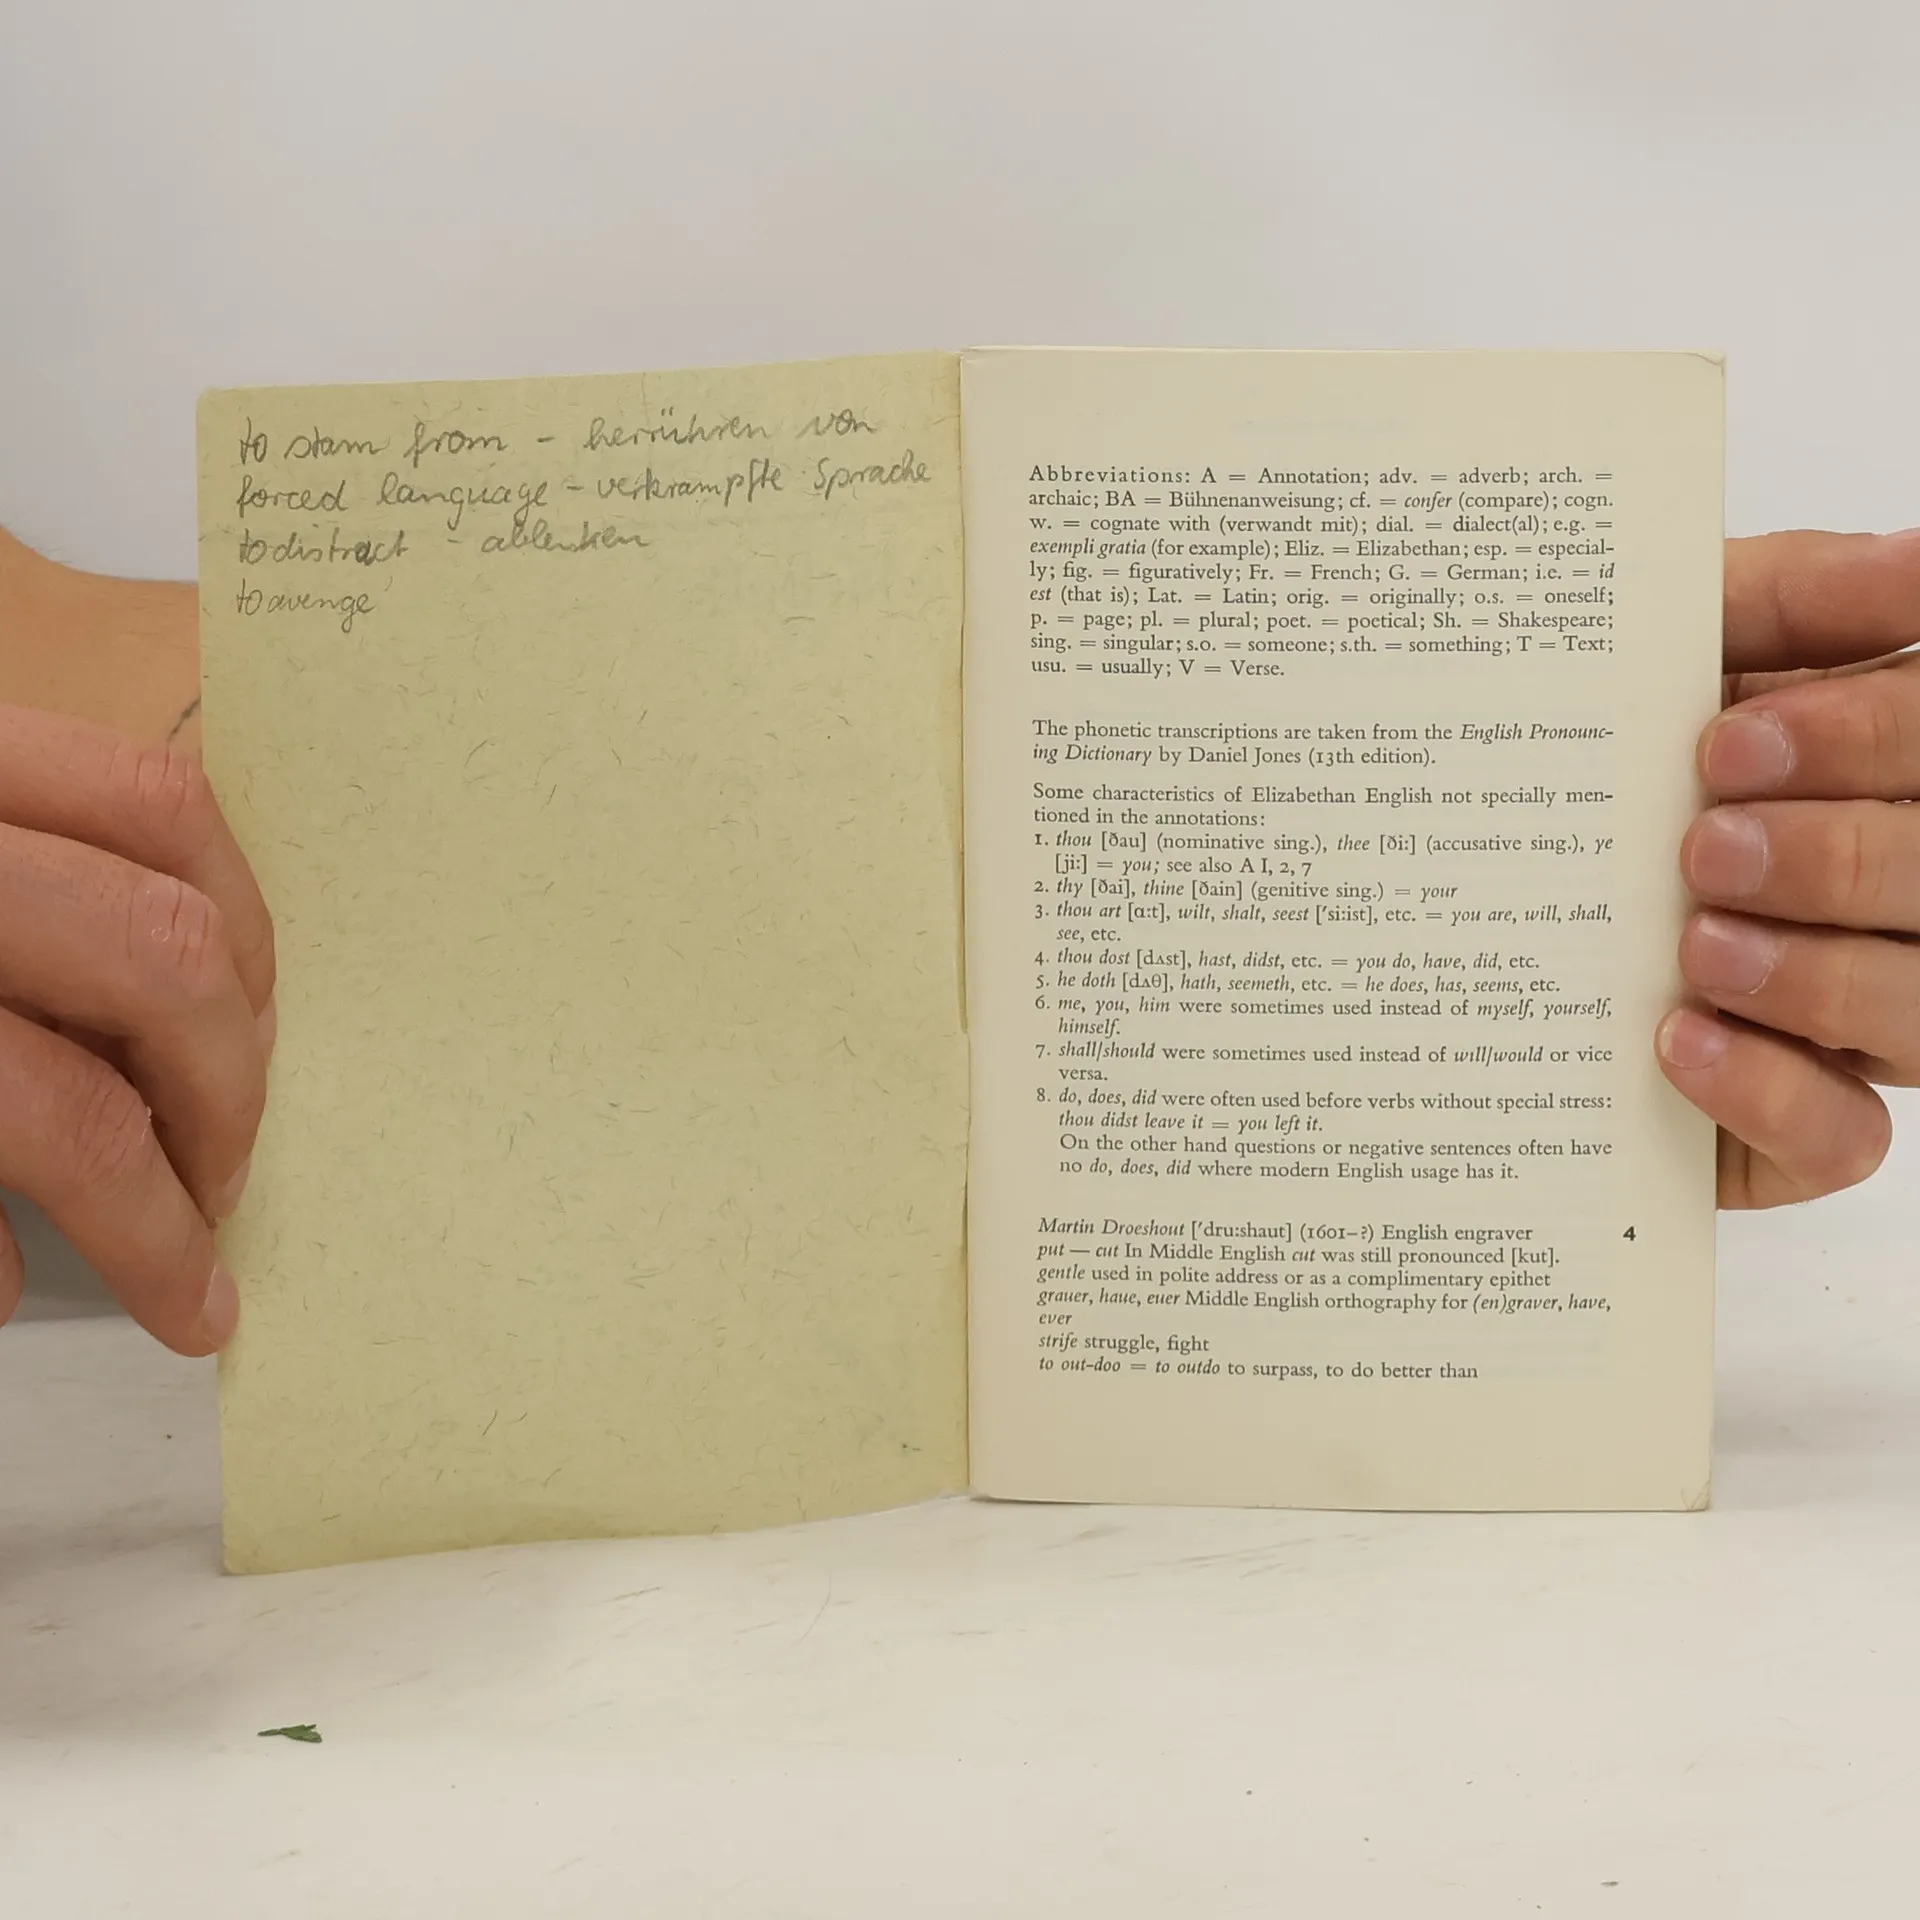 to stam from - herrühren von
forced language - verkrampfte Sprache
to distract - ablenken
to avenge
Abbreviations: A = Annotation; adv. = adverb; arch. =
archaic; BA = Bühnenanweisung; cf. = confer (compare); cogn.
w. = cognate with (verwandt mit); dial. = dialect(al); e.g. =
exempli gratia (for example); Eliz. = Elizabethan; esp. = especial-
ly; fig. = figuratively; Fr. = French; G. = German; i.e. = id
est (that is); Lat. = Latin; orig. = originally; o.s. = oneself;
p. = page; pl. = plural; poet. = poetical; Sh. = Shakespeare;
sing. = singular; s.o. = someone; s.th. = something; T = Text;
usu. = usually; V = Verse.
The phonetic transcriptions are taken from the English Pronounc-
ing Dictionary by Daniel Jones (13th edition).
Some characteristics of Elizabethan English not specially men-
tioned in the annotations:
1. thou [ðau] (nominative sing.), thee [ði:] (accusative sing.), ye
[ji:] = you; see also A I, 2, 7
2. thy [ðai], thine [ðain] (genitive sing.) = your
3. thou art [ɑ:t], wilt, shalt, seest ['si:ist], etc. = you are, will, shall,
see, etc.
4. thou dost [dʌst], hast, didst, etc. = you do, have, did, etc.
5. he doth [dʌθ], hath, seemeth, etc. = he does, has, seems, etc.
6. me, you, him were sometimes used instead of myself, yourself,
himself.
7. shall/should were sometimes used instead of will/would or vice
versa.
8. do, does, did were often used before verbs without special stress:
thou didst leave it = you left it.
On the other hand questions or negative sentences often have
no do, does, did where modern English usage has it.
Martin Droeshout ['dru:shaut] (1601–?) English engraver 4
put — cut In Middle English cut was still pronounced [kut].
gentle used in polite address or as a complimentary epithet
grauer, haue, euer Middle English orthography for (en)graver, have,
ever
strife struggle, fight
to out-doo = to outdo to surpass, to do better than